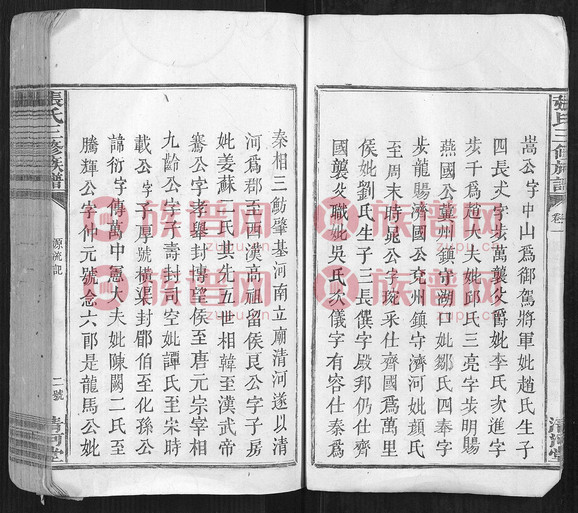 張氏三修族譜
卷一
清河堂
嵩公字中山爲御駕將軍妣趙氏生子
四長犬字步萬襲父爵妣李氏次進字
步千爲趙大夫妣邱氏三亮字步明賜
燕國公冀州鎮守湖口妣鄒氏四奉字
步龍賜濟國公兗州鎮守濟河妣顔氏
至周末時晃公字琬采仕齊國爲萬里
侯妣劉氏生子三長僎字殿邦仍仕齊
國襲父職妣吳氏次儀字有容仕秦爲
秦相三勛肇基河南立廟清河遂以清
河爲郡至西漢高祖留侯良公字子房
妣姜蘇二氏其先五世相韓至漢武帝
騫公字老舉封博望侯至唐元宗宰相
九齡公字子壽封司空妣譚氏至宋時
載公字子厚號橫渠封郿伯至化孫公
諱衍字傳萬中憲大夫妣陳闕二氏至
騰輝公字仲元號念六郎是龍馬公妣
張氏三修族譜
源流記
二號
清河堂
族谱网
zupu.cn
族谱网
zupu.cn
族谱网
zupu.cn
族谱网
zupu.cn